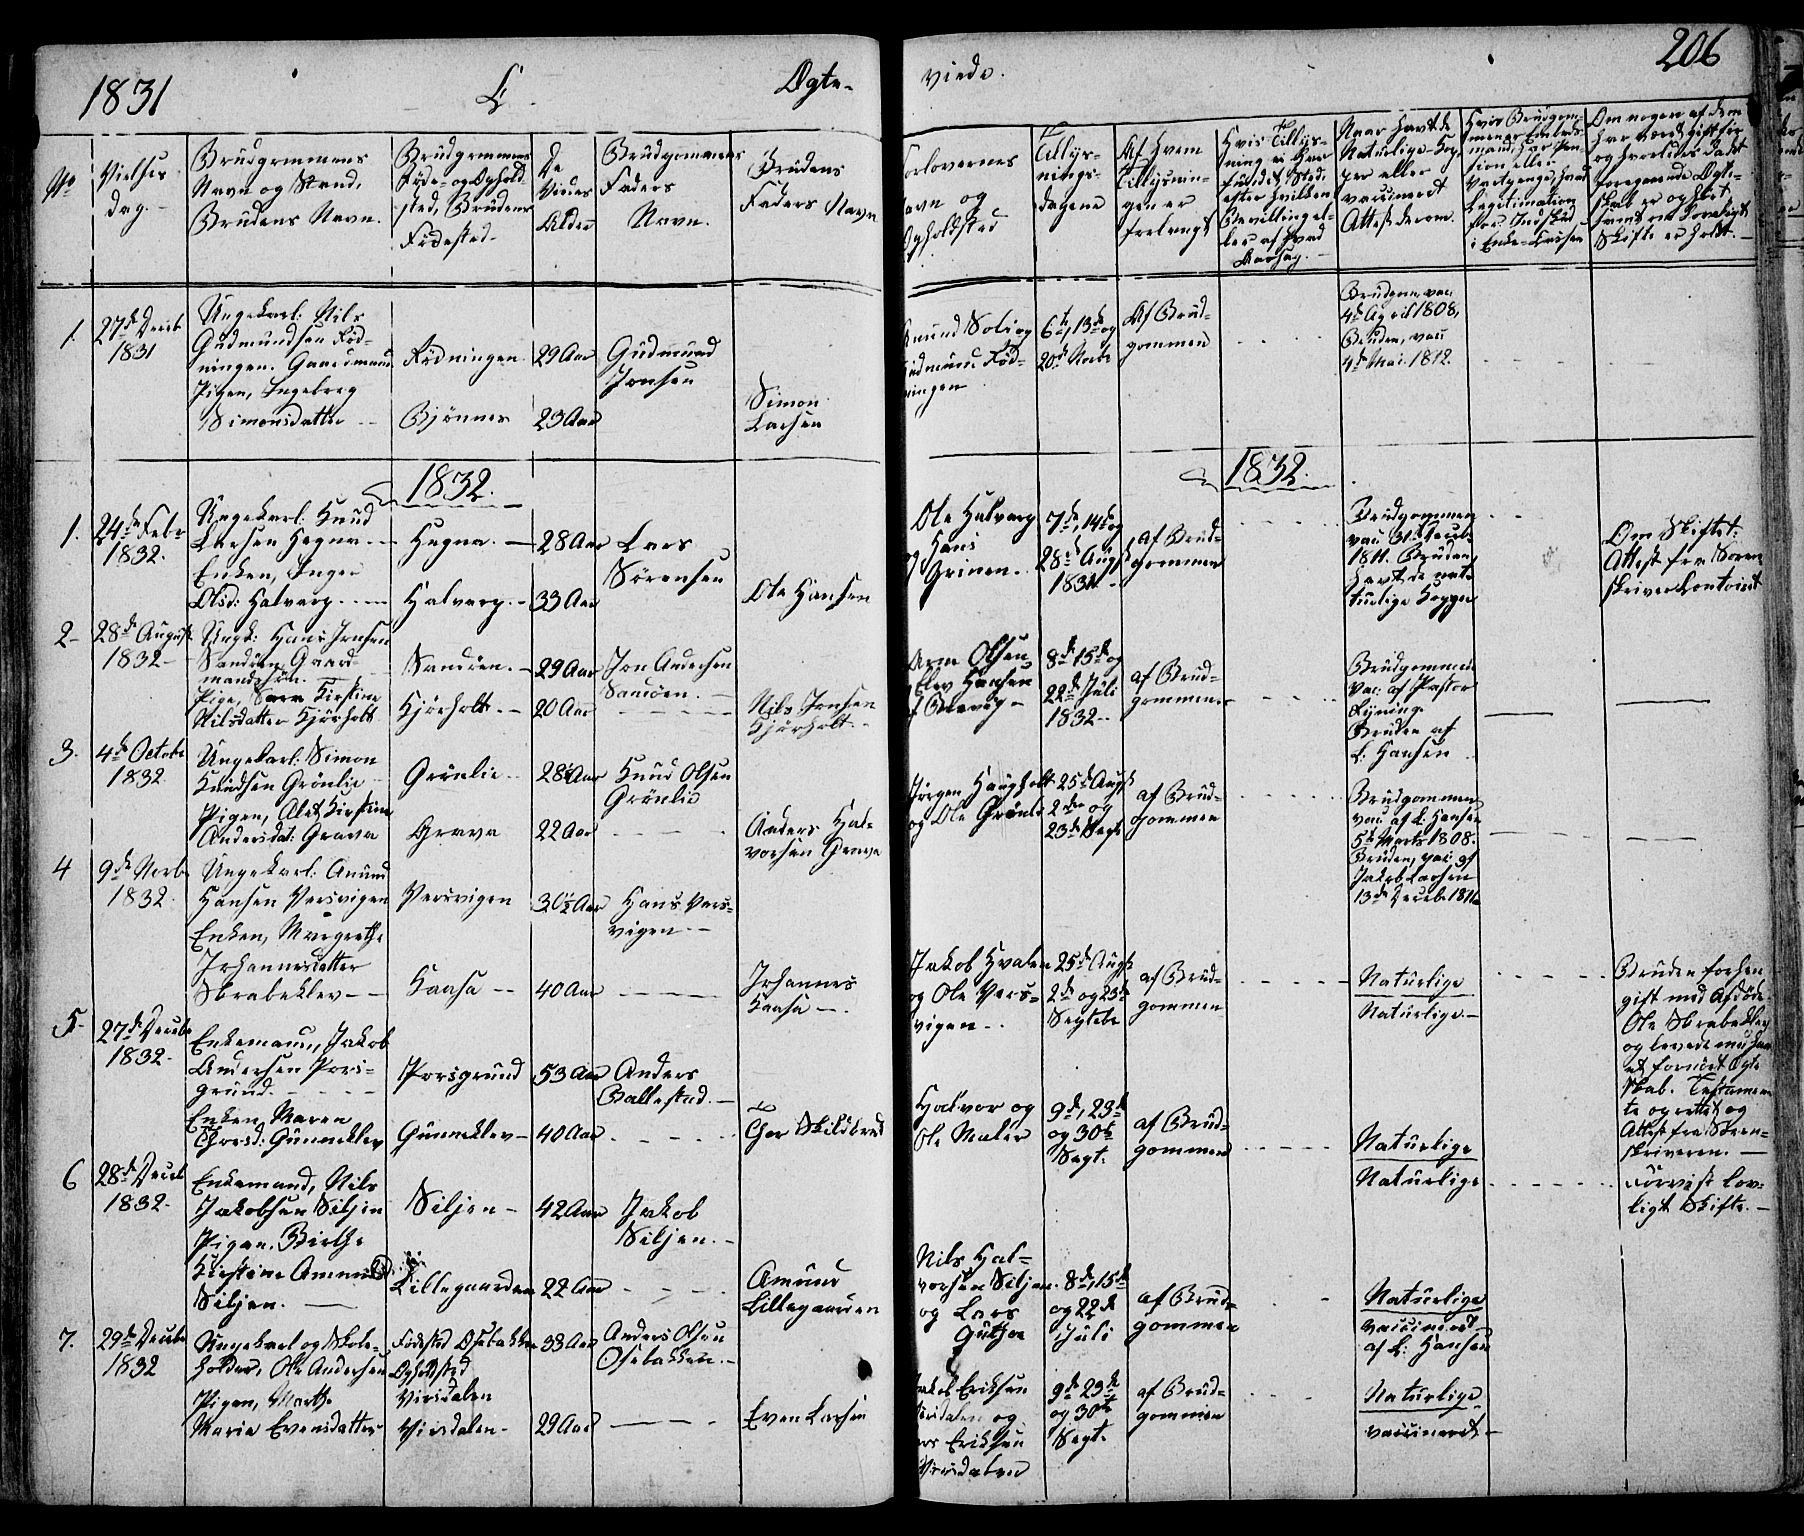 1831
L.
Ægte-
viede.
206
No
Vielses
dag.
Brudgommens
Navn og Stand,
Brudens Navn.
Brudgommens
Føde- og Ophold-
sted, Brudens
Fødested.
De
Viedes
Alder
Brudgommens
Faders
Navn.
Brudens
Faders Navn
Forlovernes
Navn og
Opholdsted
Tillys-
nings-
dagene
Af hvem
Tillysnin-
gen er
forlangt
Hvis Tillys-
ning ei har
fundet Sted,
efter hvilken
Bevilling el-
ler af hvad
Aarsag.
Naar havt de
Naturlige Kop-
per eller
vaccineret
Attest derom.
Om nogen af dem
har været gift før
og hvorledes det
foregaaende Ægte-
skab er ophørt
samt om lovligt
Skifte er holdt.
1.
27de Decbr
1831
Ungekarl: Nils
Gudmundsen Rød-
ningen. Gaardmand
Pigen, Ingeborg
Simonsdatter
Rødningen
Bjønnes
29 Aar
23 Aar
Gudmund
Jonsen
Simon
Larsen
6te, 13de og
20de Novbr
Af Brud-
gommen
Brudgom. vac:
4de April 1808,
Bruden, vac:
4de Mai. 1812.
1832.
1832.
1.
24de Febr
1832.
Ungekarl: Knud
Larsen Hegna
Enken, Inger
Olsd: Halvarp
Hegna.
Halvarp.
28 Aar
33 Aar
Lars
Sørensen
Ole Hansen
Ole Halvarp
og Hans
Grinen.
7de, 14de og
28de Augst
1831
af Brud-
gommen
Brudgommen
vac: 31te Decbr
1811. Bruden,
havt de nat-
turlige Kopper
Om Skiftet:
Attest fra Soren-
skriver Contoiret
2
28de August
1832
Ungk: Hans Jonsen
Sandøen, Gaard-
mandssøn.
Pige, Kirstine
Nilsdatter Kjørholt
Sandøen.
Kjørholt.
29 Aar
20 Aar
Jon Andersen
Sandøen.
Nils Jonsen
Kjørholt.
Olsen
Elev Hansen
8de 15de og
22de Juli
1832
af Brud-
gommen
Brudgommen
vac: af Pastor
Bruden af
L: Hansen
3.
4de Octobr
1832.
Ungekarl: Simon
Knudsen Grønlie
Pigen, Alet Kirstine
Andersdat: Grava
Grønlie
Grava
28½ Aar
22 Aar
Knud Olsen
Grønlie
Anders Hal-
vorsen Grava
Jørgen Haugholt
og Ole Grønlie
25de Augst
2den og
23de Septb
af Brud-
gommen
Brudgommen
vac: af L: Hansen
5te Marts 1808.
Bruden, vac: af
Jakob Larsen
13de Decebr 1811
4
9de Novbr
1832.
Ungekarl: Amund
Hansen Versvigen
Enken, Margrethe
Johannesdatter
Skrabeklev
Versvigen
Kaasa
30½ Aar
40 Aar
Hans Vers-
vigen.
Johannes
Kaasa
Jakob Hvalen
og Ole Vers-
vigen.
25de Augst
2de og 23de
Septebr
af Brud-
gommen
Naturlige
Naturlige.
Bruden forhen
gift med Afdøde
Ole Skrabeklev
Testamen-
te oprettet og
Attest fra Soren-
skriveren.
5
27de Decebr
1832.
Enkemand, Jakob
Andersen Pors-
grund.
Enken Maren
Thorsd: Gunneklev
Porsgrund
Gunneklev
53 Aar
40 Aar
Anders
Ballestad.
Thor Skilbred
Halvor og
Ole Moler
9de, 23de
og 30te
Sept.
af Brud-
gommen
Naturlige
Naturlige
Forvist lov-
ligt Skifte.
6
28de Deceb
1832.
Enkemand, Nils
Jakobsen Siljen
Pigen. Birthe
Kirstine Amunds
Siljen.
Siljen
Lillegaarden
42 Aar
22 Aar
Jakob
Siljen.
Amund
Lillegaarden
Nils Hal-
vorsen Siljen
og Lars
8de, 15de
og 22de
Juli
af Brud-
gommen
Naturlige
vaccineret
af L: Hansen
7.
29de Decebr
1832
Ungekarl og Skole-
holder, Ole Andersen
Pigen, Marthe
Maria Evensdatter
Fødested Osebakken
Opholdsted
Virsdalen
Virsdalen
33 Aar
29 Aar
Anders Olsen
Osebakken.
Even Larsen
Jakob Eriksen
Virsdalen og
Lars Eriksen
Virsdalen
9de 23de
og 30te
Sept.
af Brud-
gommen
Naturlige
vaccineret